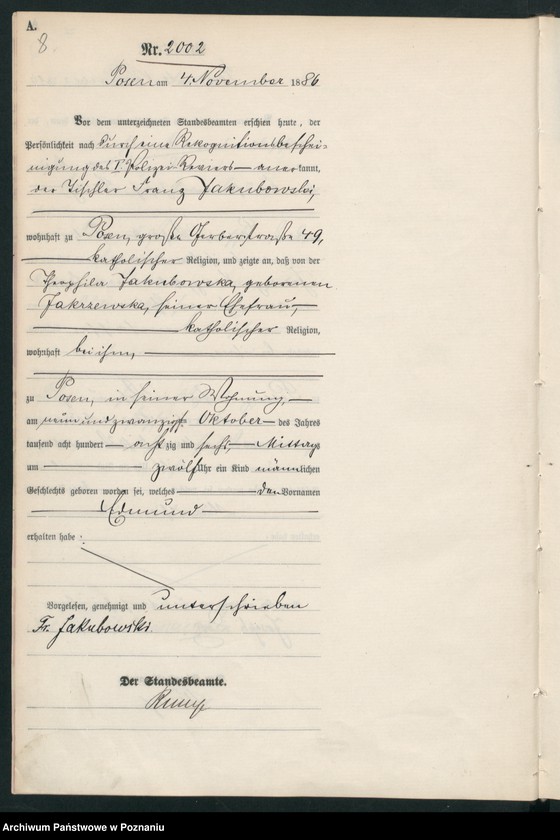 A.
8
Nr. 2002
Posen am 4. November 1886
Vor dem unterzeichneten Standesbeamten erschien heute, der
Persönlichkeit nach durch eine Rekognitionsbeschei-
nigung des V. Polizei Reviers — anerkannt,
der Tischler Franz Jakubowski,
wohnhaft zu Posen, große Gerberstraße 49,
katholischer Religion, und zeigte an, daß von der
Theophila Jakubowska, geborenen
Zakrzewska, seiner Ehefrau,
katholischer Religion,
wohnhaft bei ihm,
zu Posen, in seiner Wohnung,
am neun und zwanzigst. Oktober des Jahres
tausend acht hundert — achtzig und sechs, Mittags
um zwölf Uhr ein Kind männlichen
Geschlechts geboren worden sei, welches den Vornamen
Edmund
erhalten habe.
Vorgelesen, genehmigt und unterschrieben
Fr. Jakubowski
Der Standesbeamte.
Archiwum Państwowe w Poznaniu